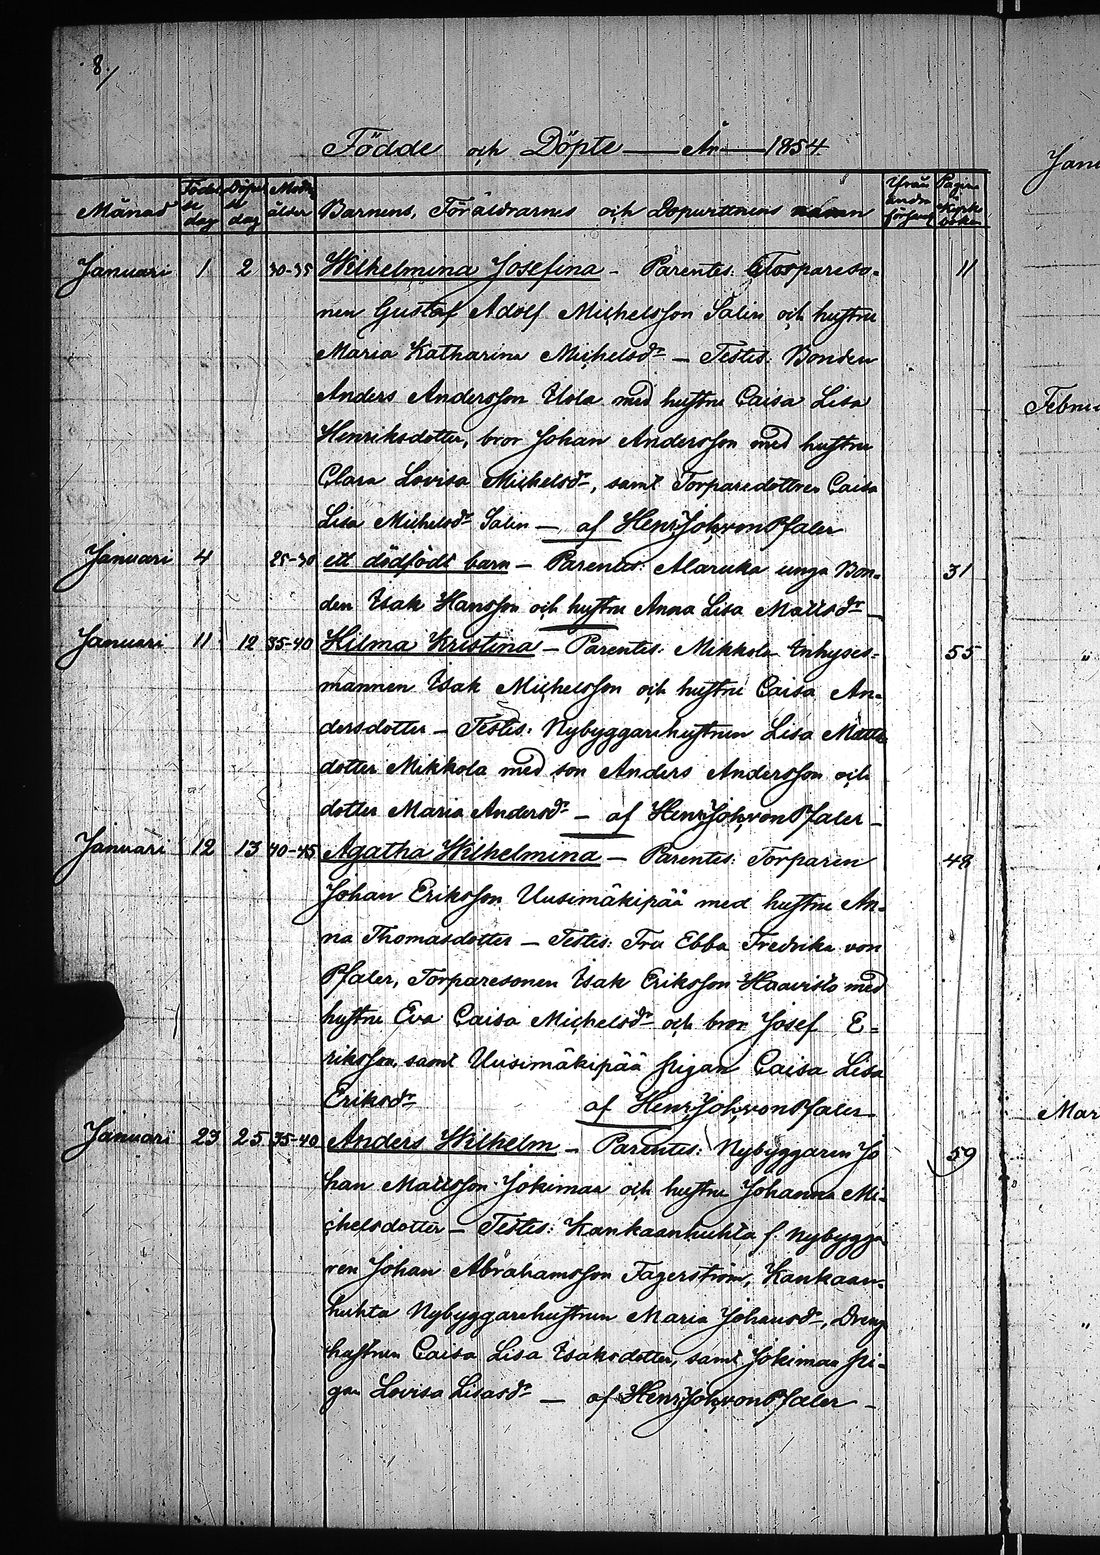 8./
Födde och Döpte — År — 1854.
Månad Födelse dag Döpelse dag Modrs ålder Barnens, Föräldrarnes och Dopvittnens namn Ifrån andra församl Pagina i Kyrkoboken
Januari 1 2 30-35 Wilhelmina Josefina - Parentes: Torpareso- 11
nen Gustaf Adolf Michelsson Salin och hustru
Maria Katharina Michelsdr — Testes: Bonden
Anders Andersson Uola med hustru Caisa Lisa
Henriksdotter, bror Johan Andersson med hustru
Clara Lovisa Michelsdr, samt Torparedottren Caisa
Lisa Michelsdr Salin — af Henr. Joh. von Pfaler
Januari 4 25-30 ett dödfödt barn — Parentes: Alaruka unga Bon- 31
den Isak Hansson och hustru Anna Lisa Mattsdr —
Januari 11 12 35-40 Hilma Kristina — Parentes: Mikkola Inhyses- 55
mannen Isak Michelsson och hustru Caisa An-
dersdotter — Testes: Nybyggarehustrun Lisa Matts
dotter Mikkola med son Anders Andersson och
dotter Maria Andersdr — af Henr. Joh. von Pfaler —
Januari 12 13 40-45 Agatha Wilhelmina — Parentes: Torparen 48
Johan Eriksson Uusimäkipää med hustru An-
na Thomasdotter — Testes: Fru Ebba Fredrika von
Pfaler, Torparesonen Isak Eriksson Haavisto med
hustru Eva Caisa Michelsdr och bror Josef E-
riksson, samt Uusimäkipää pigan Caisa Lisa
Eriksdr af Henr. Joh. von Pfaler
Januari 23 25 35-40 Anders Wilhelm — Parentes: Nybyggaren Jo 59
han Mattsson Jokimaa och hustru Johanna Mi-
chelsdotter — Testes: Kankaanhuhta f. Nybygga
ren Johan Abrahamsson Fagerström, Kankaan-
huhta Nybyggarehustrun Maria Johansdr, Dreng
hustrun Caisa Lisa Isaksdotter, samt Jokimaa pi-
gan Lovisa Lisasdr — af Henr. Joh. von Pfaler —